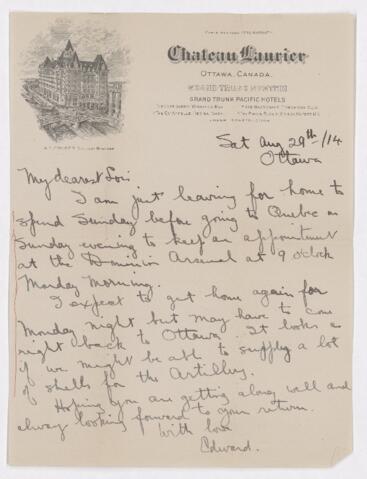 Chateau Laurier
Ottawa, Canada.
Grand Trunk System
Grand Trunk Pacific Hotels
Sat Aug 29th/14
Ottawa
My dearest
I am just leaving for home to
spend Sunday before going to Quebec on
Sunday evening to keep an appointment
at the Dominion Arsenal at 9 o'clock
Monday Morning.
I expect to get home again for
Monday night but may have to come
right back to Ottawa. It looks as
if we might be able to supply a lot
of shells for the Artillery.
Hoping you are getting along well and
always looking forward to your return.
With love
Edward.